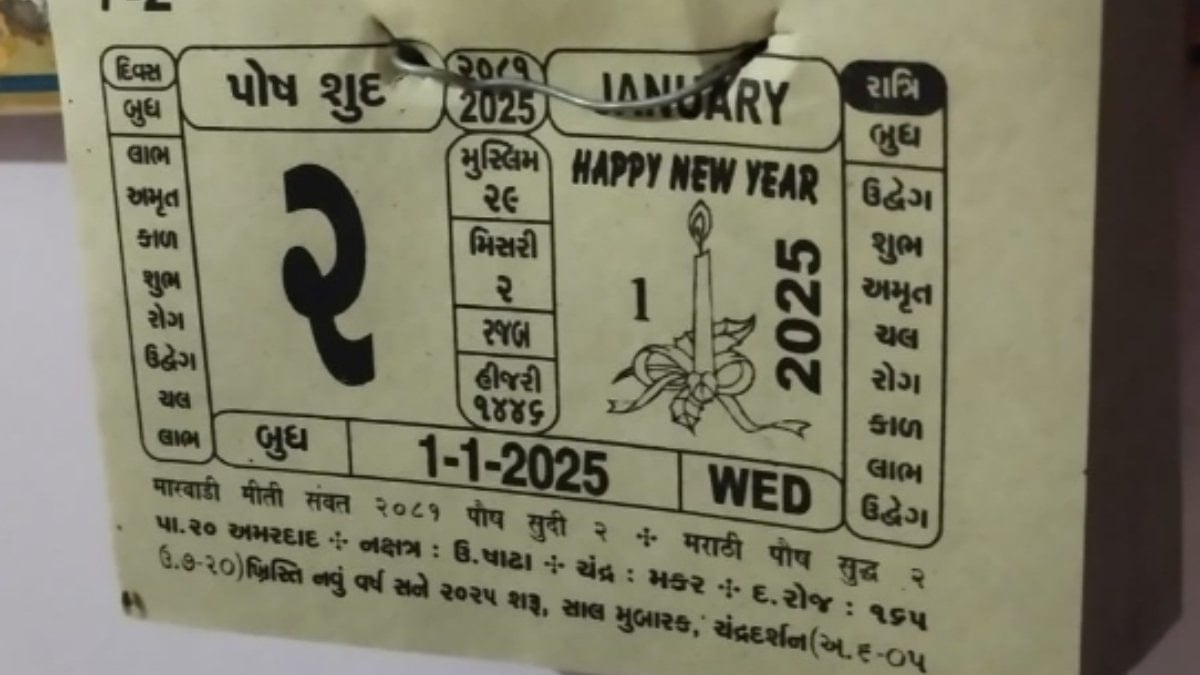 દિવસ
બુધ
લાભ
અમૃત
કાળ
શુભ
રોગ
ઉદ્વેગ
ચલ
લાભ
પોષ શુદ
૨
૨૦૮૧
2025
મુસ્લિમ
૨૯
મિસરી
૨
રજબ
હીજરી
૧૪૪૬
JANUARY
HAPPY NEW YEAR
1
2025
રાત્રિ
બુધ
ઉદ્વેગ
શુભ
અમૃત
ચલ
રોગ
કાળ
લાભ
ઉદ્વેગ
બુધ 1-1-2025 WED
मारवाडी मीती संवत २०८१ पौष सुदी २ ÷ मराठी पौष सुद्ध २
પા.૨૦ અમરદાદ ÷ નક્ષત્ર : ઉ.ષાઢા ÷ ચંદ્ર : મકર ÷ દ.રોજ : ૧૬૫
ઉ.૭-૨૦)ખ્રિસ્તિ નવું વર્ષ સને ૨૦૨૫ શરૂ, સાલ મુબારક, ચંદ્રદર્શન(અ.૬-૦૫